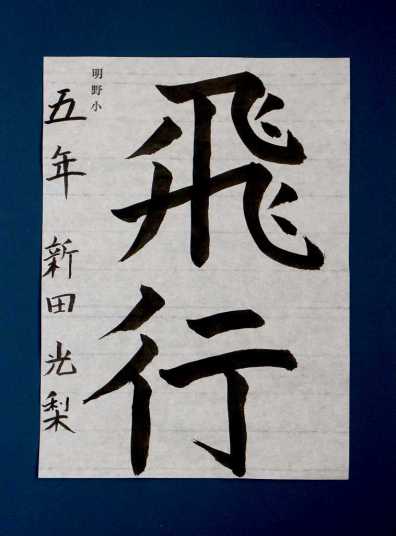 飛行
明野小
五年 新田光梨